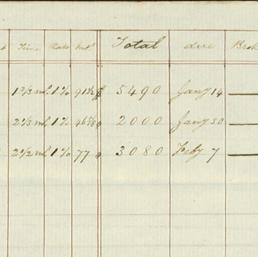 Time Rate Int Total due Brok
1⅔ m 1% 91½ $ 5490 Jany 14
2⅓ m 1% 46⅔ 2000 Jany 30
2½ m 1% 77 3080 Feby 7